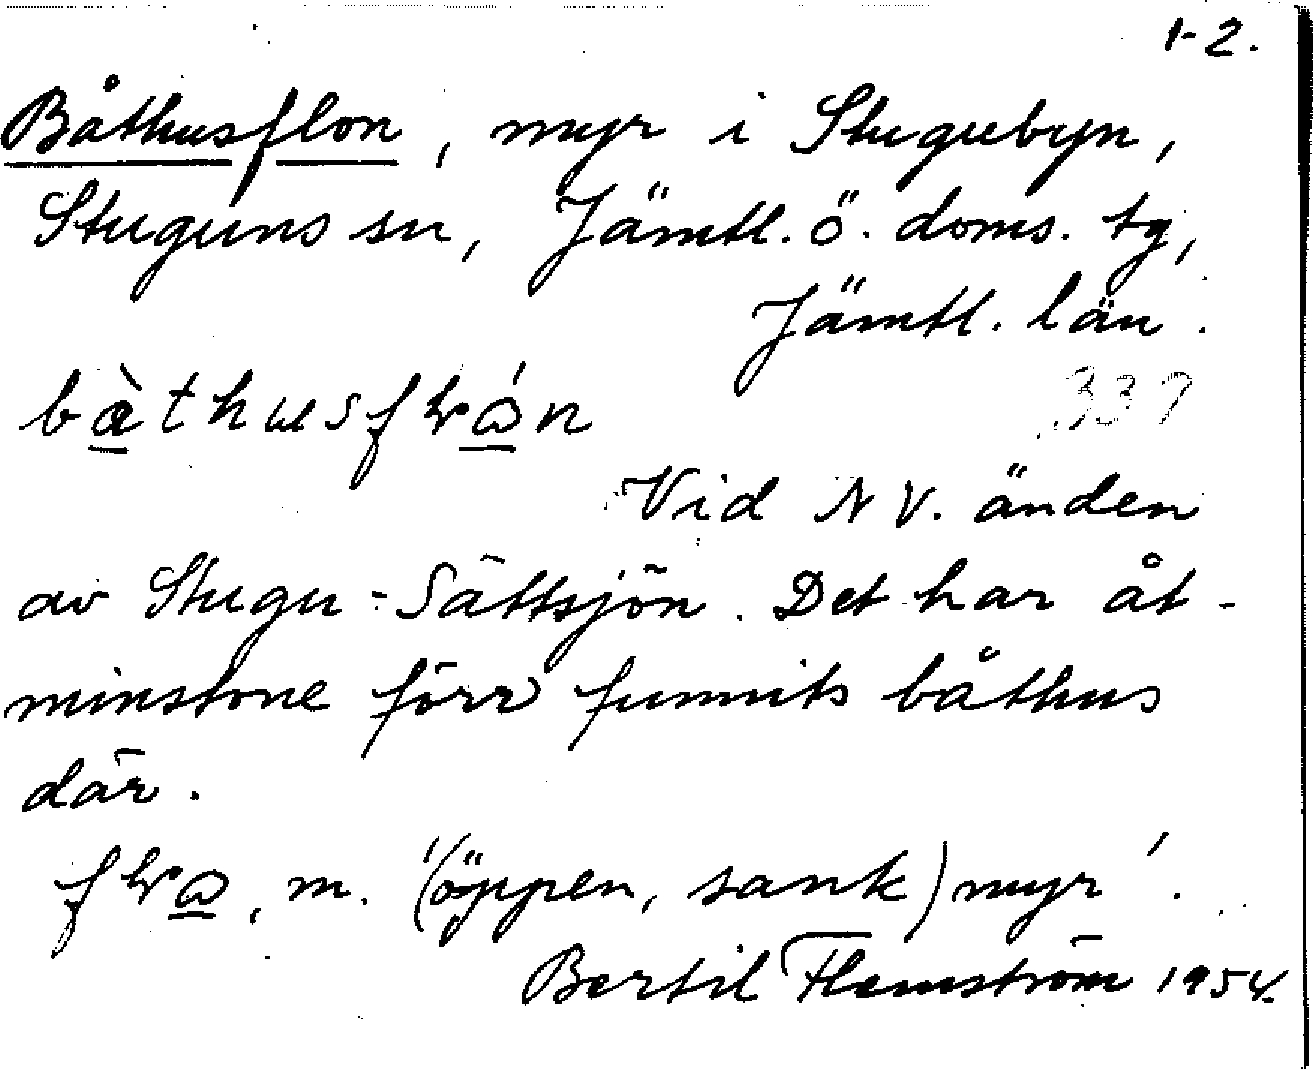 1-2.
Båthusflon, myr i Stugubyn,
Stuguns sn, Jämtl. ö. doms. tg,
Jämtl. län.
339
Vid NV. änden
av Stugu-Sättsjön. Det har åt-
minstone förr funnits båthus
där.
m. '(öppen, sank) myr'.
Bertil Flemström 1954.